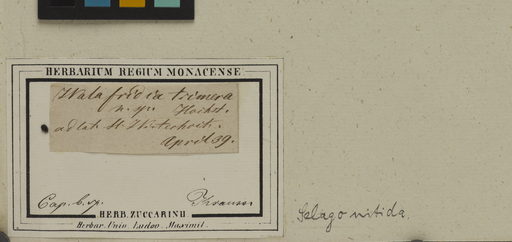 HERBARIUM REGIUM MONACENSE
Walafridia
n. sp. Hochst.
ad lat.
April 39.
Cap. b. sp. Krauss
HERB. ZUCCARINII
Herbar. Univ. Ludov. Maximil.
Selago nitida.